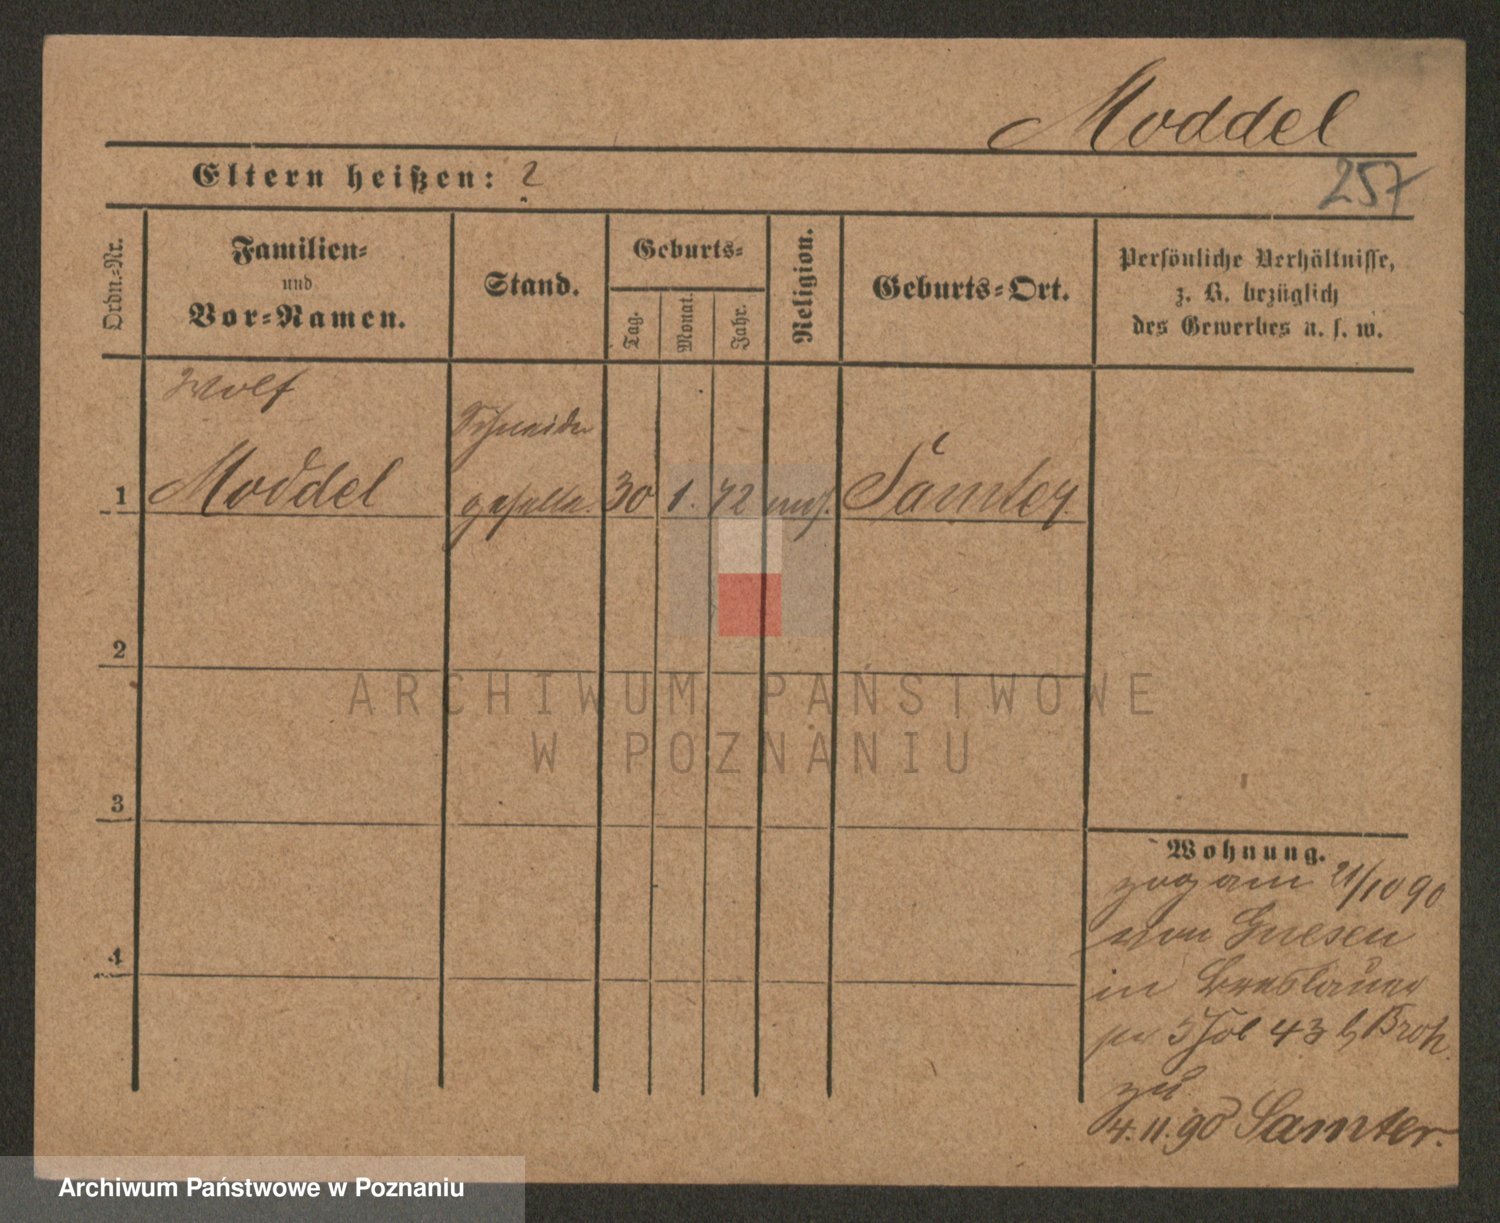 Moddel
257
Eltern heißen: 2
Ordn.-Nr.
Familien-
und
Vor-Namen.
Stand.
Geburts-
Tag.
Monat.
Jahr.
Religion.
Geburts-Ort.
Persönliche Verhältnisse,
z. B. bezüglich
des Gewerbes u. s. w.
Wolf
Schneider
1 Moddel geselle. 30 1. 72 mos. Samter
2
3
4
Wohnung.
zog am 21/10 90
von Gnesen
in Breslauer
43 b Broh.
zu
4.11.90 Samter.
ARCHIWUM PAŃSTWOWE
W POZNANIU
Archiwum Państwowe w Poznaniu